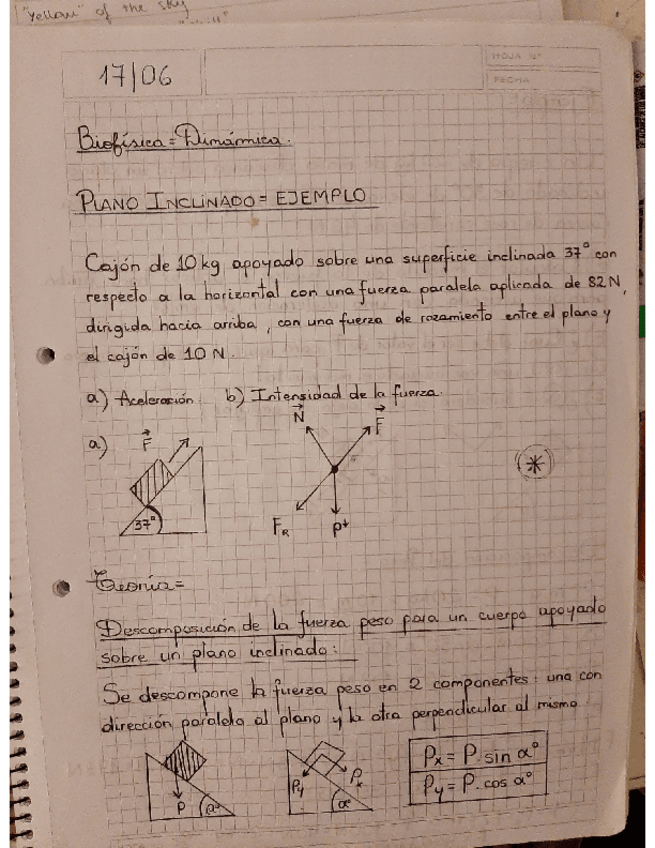 "Yellow" of the sky
HOJA N°
FECHA
17/06
Biofísica = Dinámica.
PLANO INCLINADO = EJEMPLO
Cajón de 10 kg apoyado sobre una superficie inclinada 37° con
respecto a la horizontal con una fuerza paralela aplicada de 82 N,
dirigida hacia arriba, con una fuerza de rozamiento entre el plano y
el cajón de 10 N.
a) Aceleración b) Intensidad de la fuerza.
a) F
37°
N F
FR P
*
Teoría =
Descomposición de la fuerza peso para un cuerpo apoyado
sobre un plano inclinado:
Se descompone la fuerza peso en 2 componentes: una con
dirección paralela al plano y la otra perpendicular al mismo.
P α°
Py Px α°
Px = P. sin α°
Py = P. cos α°